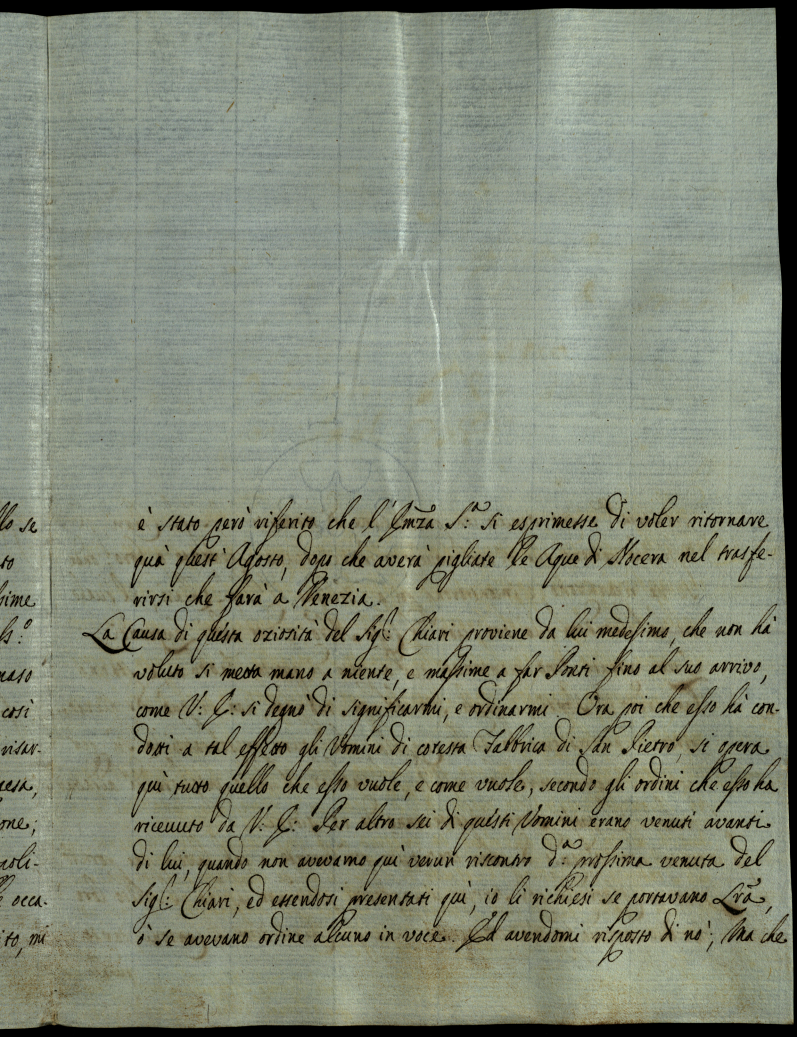 lo se
to
sime
ls:º
naso
cosi
risar-
gesa,
one;
aoli-
occa-
ito, mi
è stato però riferito che l'Emza S:ª si esprimesse di voler ritornare
quà quest'Agosto, dopo che averà pigliate le Aque di Nocera nel trasfe-
rirsi che farà a Venezia.
La Causa di questa oziosità del Sig:r Chiari proviene da lui medesimo, che non hà
voluto si metta mano a niente, e massime a far Ponti fino al suo arrivo,
come V: E: si degnò di significarmi, e ordinarmi. Ora poi che esso hà con-
dotti a tal effetto gli Uomini di cotesta Fabbrica di San Pietro, si opera
quì tutto quello che esso vuole, e come vuole, secondo gli ordini che esso ha
ricevuto da V: E: Per altro sei di questi Uomini erano venuti avanti
di lui, quando non avevamo quì verun riscontro d:ª prossima venuta del
Sig:r Chiari, ed essendosi presentati quì, io li richiesi se portavano Lrã,
ò se avevano ordine alcuno in voce. Ed avendomi risposto di nò; Ma che